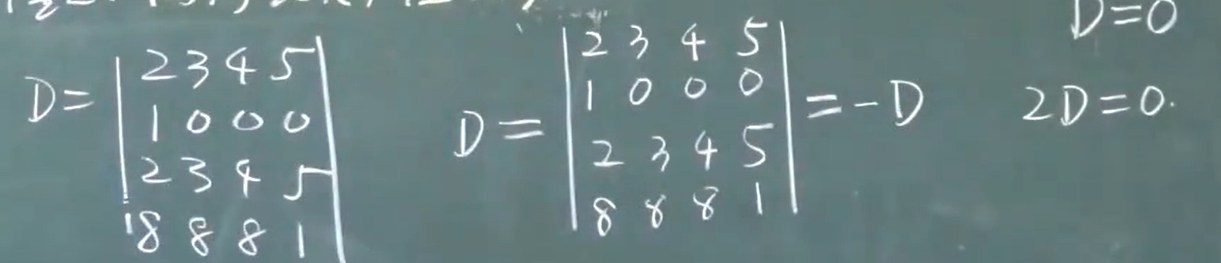 D=0
D= | 2 3 4 5 |
| 1 0 0 0 |
| 2 3 4 5 |
| 8 8 8 1 |
D= | 2 3 4 5 |
| 1 0 0 0 |
| 2 3 4 5 |
| 8 8 8 1 | =-D
2D=0.